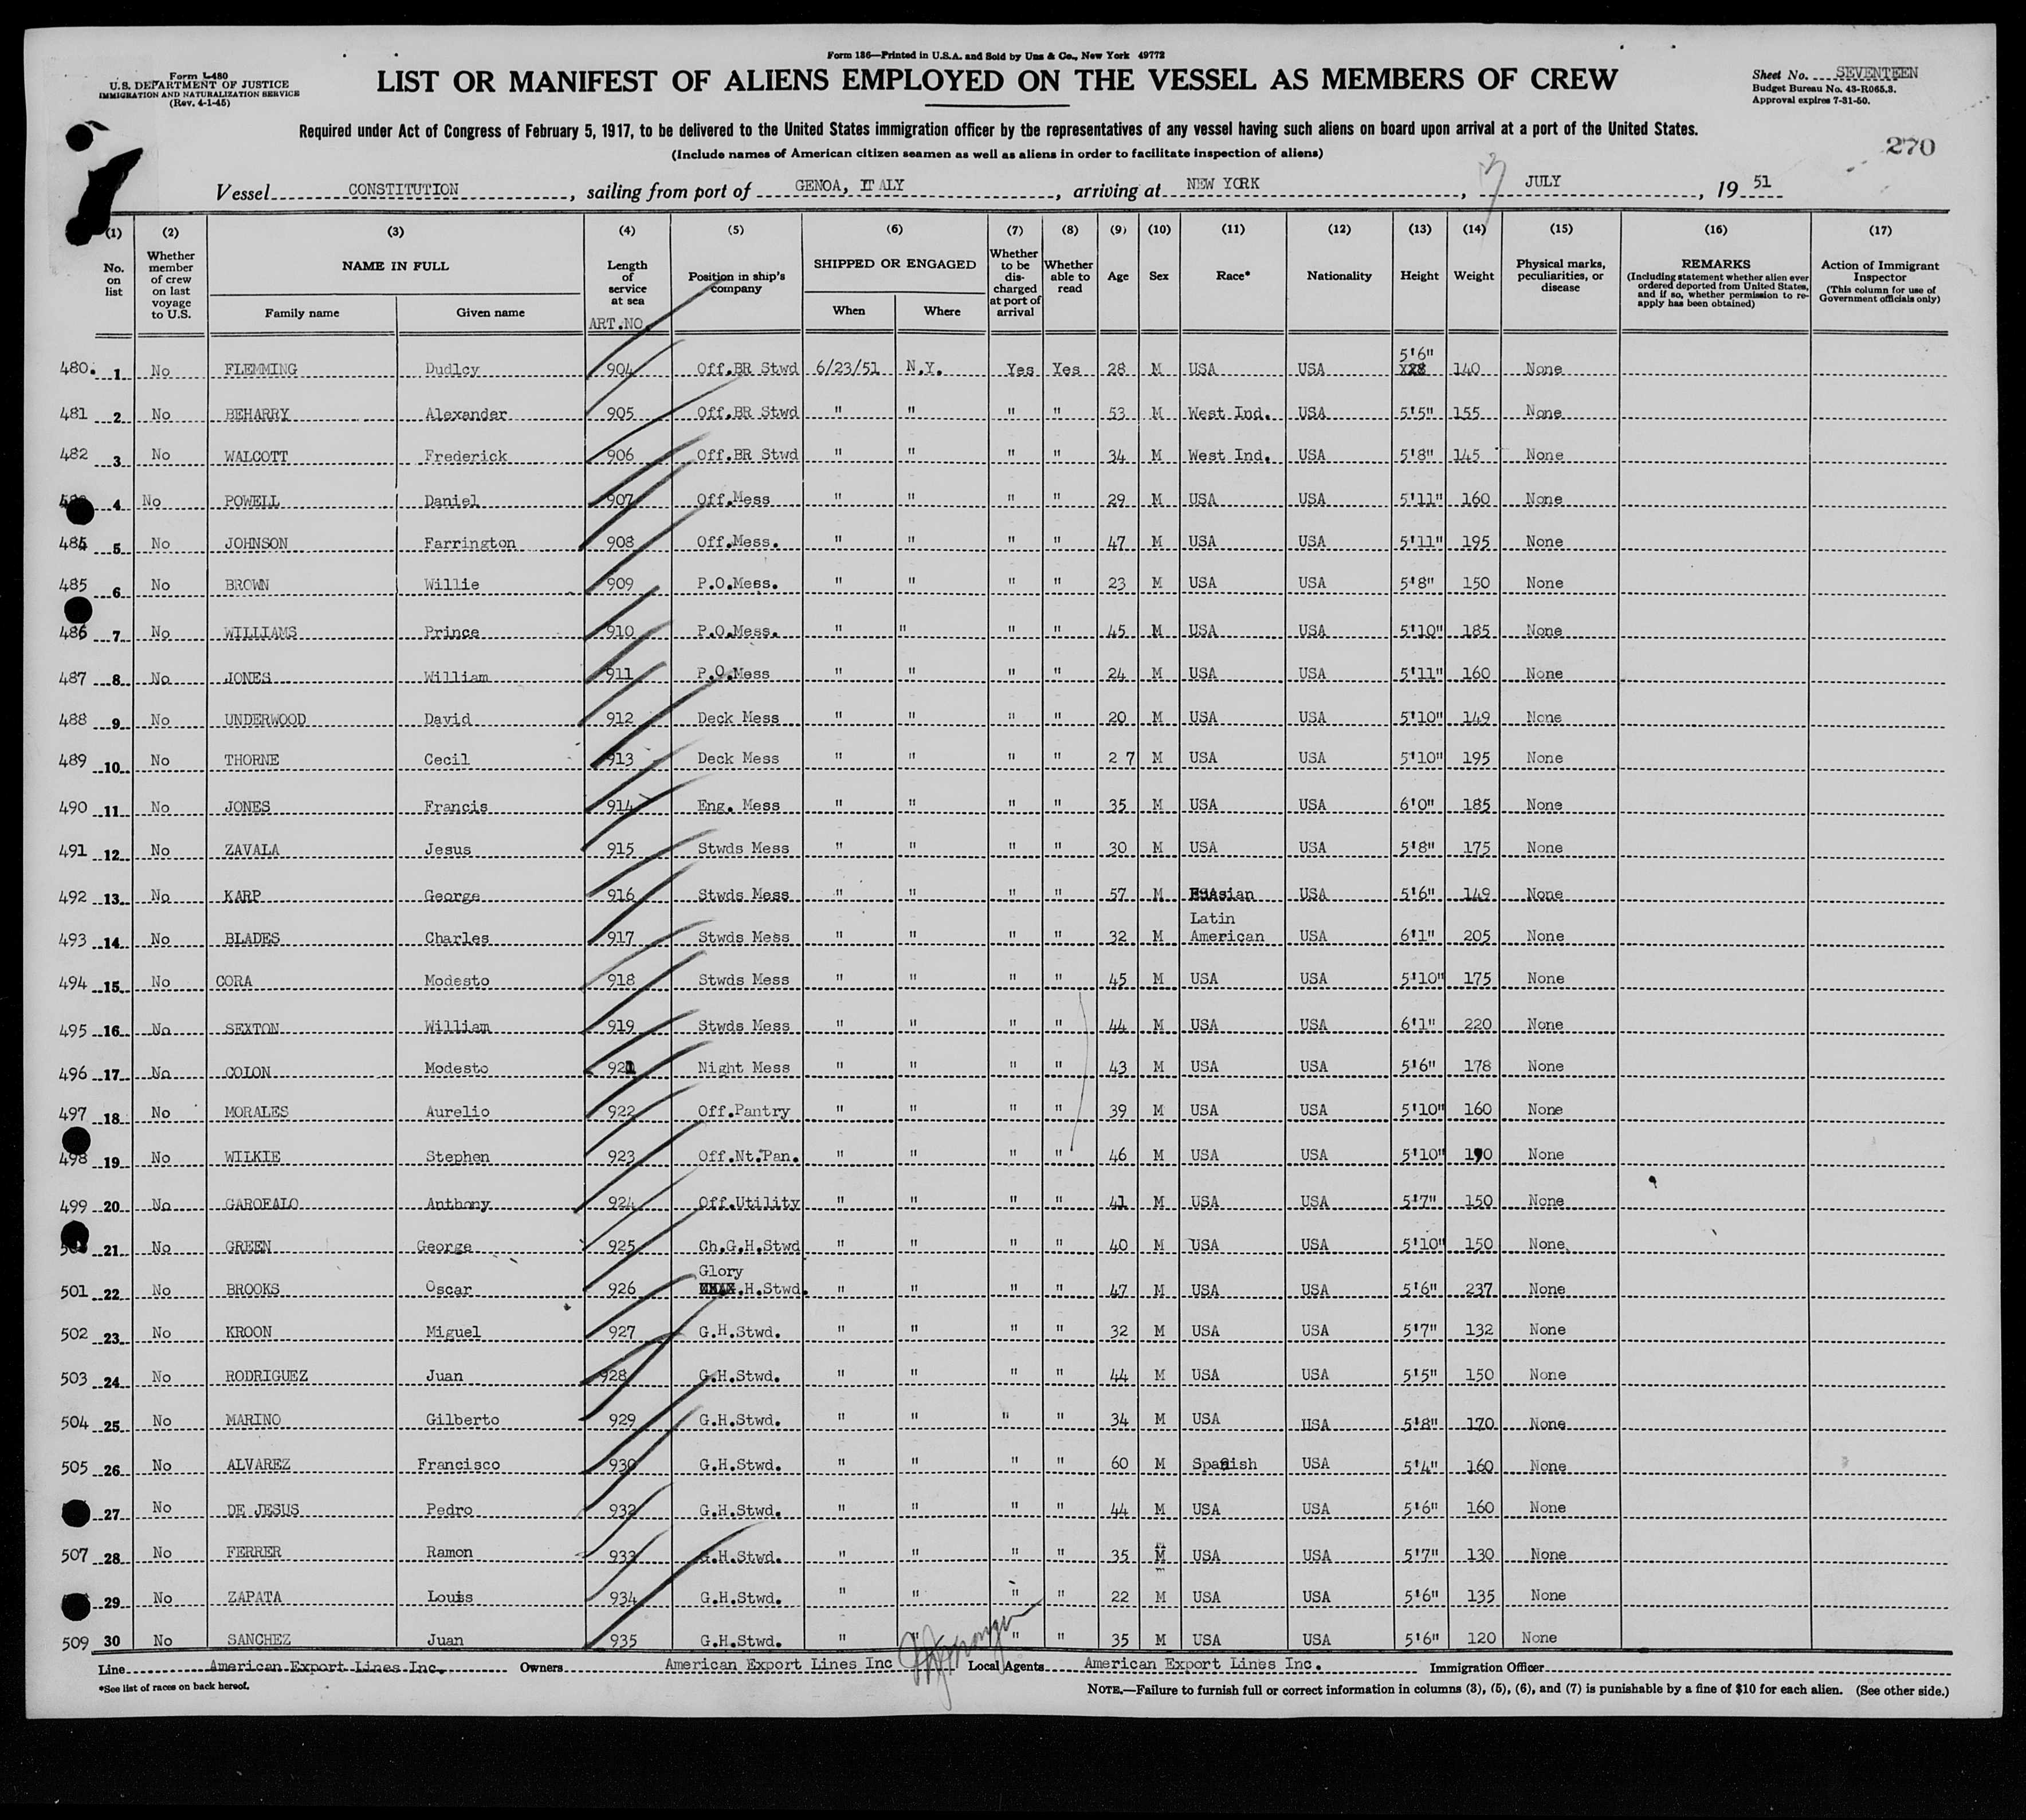 Form 136—Printed in U.S.A. and Sold by Unz & Co., New York 49772
Form I-480
U.S. DEPARTMENT OF JUSTICE
IMMIGRATION AND NATURALIZATION SERVICE
(Rev. 4-1-45)
LIST OR MANIFEST OF ALIENS EMPLOYED ON THE VESSEL AS MEMBERS OF CREW
Sheet No. SEVENTEEN
Budget Bureau No. 43-R065.3.
Approval expires 7-31-50.
Required under Act of Congress of February 5, 1917, to be delivered to the United States immigration officer by the representatives of any vessel having such aliens on board upon arrival at a port of the United States.
(Include names of American citizen seamen as well as aliens in order to facilitate inspection of aliens)
270
Vessel CONSTITUTION, sailing from port of GENOA, ITALY, arriving at NEW YORK, JULY, 19 51
(1) (2) (3) (4) (5) (6) (7) (8) (9) (10) (11) (12) (13) (14) (15) (16) (17)
No. on list
Whether member of crew on last voyage to U.S.
NAME IN FULL
Family name
Given name
Length of service at sea
ART.NO
Position in ship's company
SHIPPED OR ENGAGED
When
Where
Whether to be discharged at port of arrival
Whether able to read
Age
Sex
Race*
Nationality
Height
Weight
Physical marks, peculiarities, or disease
REMARKS
(Including statement whether alien ever ordered deported from United States, and if so, whether permission to reapply has been obtained)
Action of Immigrant Inspector
(This column for use of Government officials only)
480. 1 No FLEMMING Dudley 904 Off.BR Stwd 6/23/51 N.Y. Yes Yes 28 M USA USA 5'6" 140 None
481 2 No BEHARRY Alexander 905 Off.BR Stwd " " " " 53 M West Ind. USA 5'5" 155 None
482 3 No WALCOTT Frederick 906 Off.BR Stwd " " " " 34 M West Ind. USA 5'8" 145 None
4 No POWELL Daniel 907 Off.Mess " " " " 29 M USA USA 5'11" 160 None
484 5 No JOHNSON Farrington 908 Off.Mess. " " " " 47 M USA USA 5'11" 195 None
485 6 No BROWN Willie 909 P.O.Mess. " " " " 23 M USA USA 5'8" 150 None
486 7 No WILLIAMS Prince 910 P.O.Mess. " " " " 45 M USA USA 5'10" 185 None
487 8 No JONES William 911 P.O.Mess " " " " 24 M USA USA 5'11" 160 None
488 9 No UNDERWOOD David 912 Deck Mess " " " " 20 M USA USA 5'10" 149 None
489 10 No THORNE Cecil 913 Deck Mess " " " " 2 7 M USA USA 5'10" 195 None
490 11 No JONES Francis 914 Eng. Mess " " " " 35 M USA USA 6'0" 185 None
491 12 No ZAVALA Jesus 915 Stwds Mess " " " " 30 M USA USA 5'8" 175 None
492 13 No KARP George 916 Stwds Mess " " " " 57 M Russian USA 5'6" 149 None
493 14 No BLADES Charles 917 Stwds Mess " " " " 32 M Latin American USA 6'1" 205 None
494 15 No CORA Modesto 918 Stwds Mess " " " " 45 M USA USA 5'10" 175 None
495 16 No SEXTON William 919 Stwds Mess " " " " 44 M USA USA 6'1" 220 None
496 17 No COLON Modesto 921 Night Mess " " " " 43 M USA USA 5'6" 178 None
497 18 No MORALES Aurelio 922 Off.Pantry " " " " 39 M USA USA 5'10" 160 None
498 19 No WILKIE Stephen 923 Off.Nt.Pan. " " " " 46 M USA USA 5'10" 190 None
499 20 No GAROFALO Anthony 924 Off.Utility " " " " 41 M USA USA 5'7" 150 None
21 No GREEN George 925 Ch.G.H.Stwd " " " " 40 M USA USA 5'10" 150 None
501 22 No BROOKS Oscar 926 Glory H.Stwd. " " " " 47 M USA USA 5'6" 237 None
502 23 No KROON Miguel 927 G.H.Stwd. " " " " 32 M USA USA 5'7" 132 None
503 24 No RODRIGUEZ Juan 928 G.H.Stwd. " " " " 44 M USA USA 5'5" 150 None
504 25 No MARINO Gilberto 929 G.H.Stwd. " " " " 34 M USA USA 5'8" 170 None
505 26 No ALVAREZ Francisco 930 G.H.Stwd. " " " " 60 M Spanish USA 5'4" 160 None
27 No DE JESUS Pedro 932 G.H.Stwd. " " " " 44 M USA USA 5'6" 160 None
507 28 No FERRER Ramon 933 G.H.Stwd. " " " " 35 M USA USA 5'7" 130 None
29 No ZAPATA Louis 934 G.H.Stwd. " " " " 22 M USA USA 5'6" 135 None
509 30 No SANCHEZ Juan 935 G.H.Stwd. " " " " 35 M USA USA 5'6" 120 None
Line American Export Lines Inc. Owners American Export Lines Inc Local Agents American Export Lines Inc. Immigration Officer
*See list of races on back hereof.
NOTE.—Failure to furnish full or correct information in columns (3), (5), (6), and (7) is punishable by a fine of $10 for each alien. (See other side.)